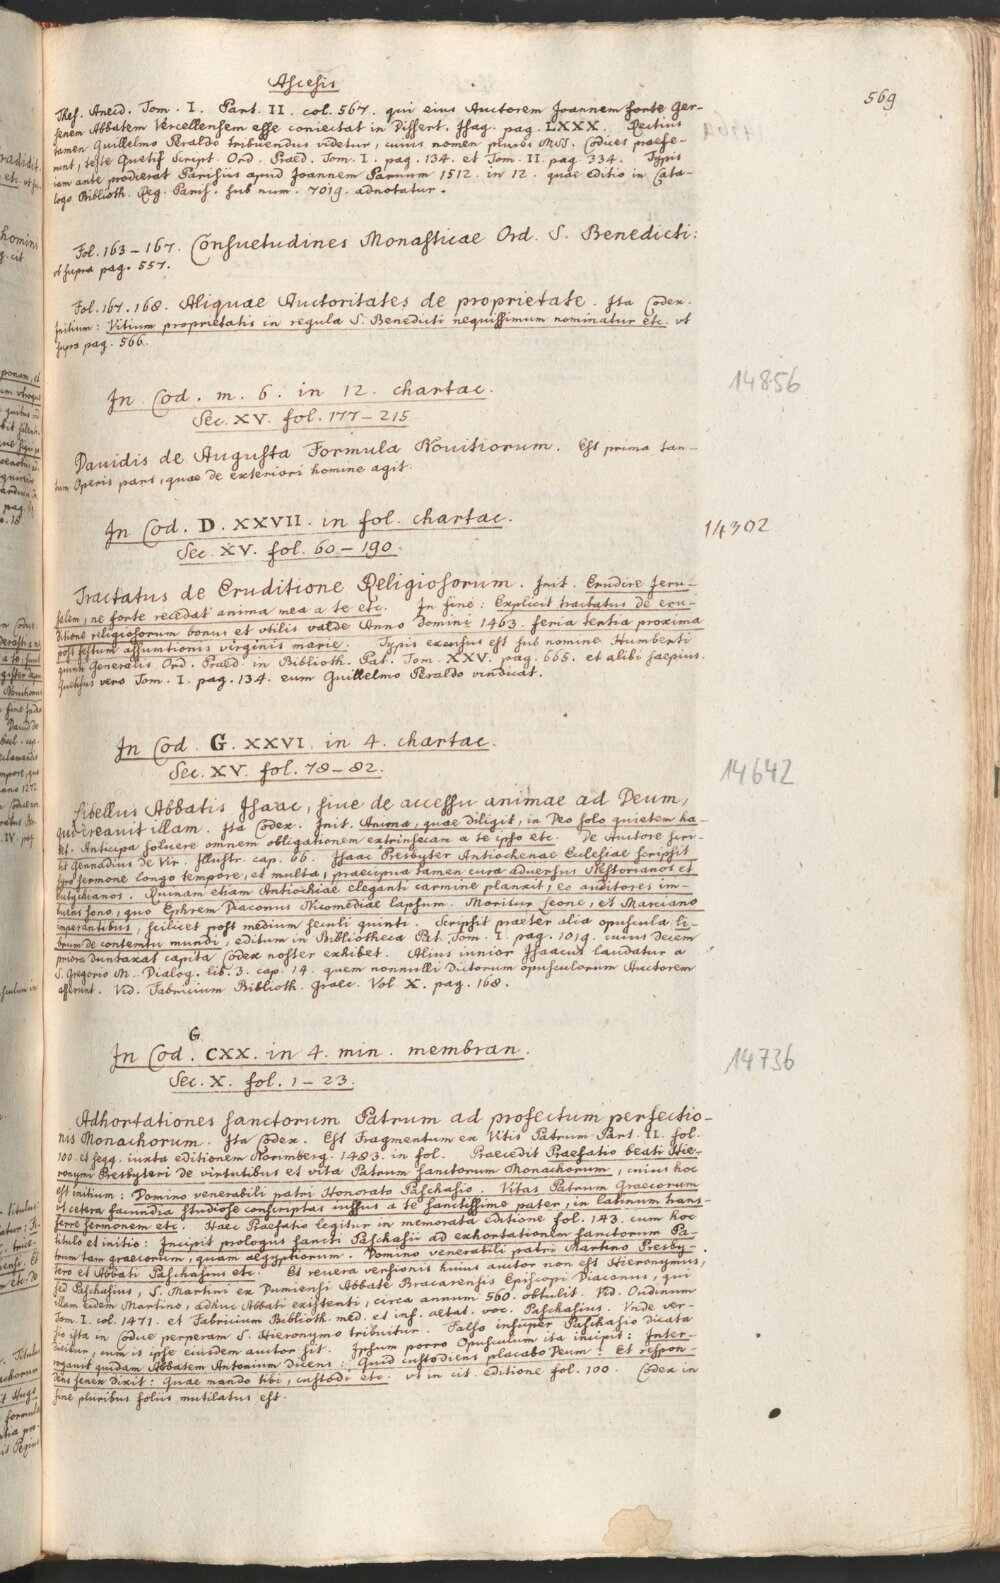 Ascesis
569
Thes. Anecd. Tom. I. Part. II. col. 567. qui eius Auctorem Joannem forte Ger-
senem Abbatem Vercellensem esse coniectat in Dissert. Isag. pag. LXXX. Rectius
tamen Guillelmo Peraldo tribuendus videtur, cuius nomen plures MSS. Codices praefe-
runt, teste Quetif Script. Ord. Praed. Tom. I. pag. 134. et Tom. II. pag. 334. Typis
iam ante prodierat Parisiis apud Joannem Parvum 1512. in 12. quae editio in Cata-
logo Biblioth. Reg. Paris. sub num. 7019. adnotatur.
Fol. 163-167. Consuetudines Monasticae Ord. S. Benedicti:
vt supra pag. 557.
Fol. 167. 168. Aliquae Auctoritates de proprietate. Ita Codex.
Initium: Vitium proprietatis in regula S. Benedicti nequissimum nominatur etc. vt
supra pag. 566.
In Cod. m. 6. in 12. chartac.
14856
Sec. XV. fol. 177-215.
Dauidis de Augusta Formula Nouitiorum. Est prima tan-
tum Operis pars, quae de exteriori homine agit.
In Cod. D. XXVII. in fol. chartac.
14302
Sec. XV. fol. 60-190.
Tractatus de Eruditione Religiosorum. Init. Erudire Jeru-
salem, ne forte recedat anima mea a te etc. In fine: Explicit tractatus de eru-
ditione religiosorum bonus et vtilis valde Anno Domini 1463. feria tertia proxima
post festum assumtionis virginis marie. Typis excusus est sub nomine Humberti
quinti Generalis Ord. Praed. in Biblioth. Pat. Tom. XXV. pag. 665. et alibi saepius.
Quetifius vero Tom. I. pag. 134. eum Guillelmo Peraldo vindicat.
In Cod. G. XXVI. in 4. chartac.
14642
Sec. XV. fol. 78-82.
Libellus Abbatis Isaac, siue de accessu animae ad Deum,
qui creauit illam. Ita Codex. Init. Anima, quae diligit, in Deo solo quietem ha-
bet. Anticipa soluere omnem obligationem extrinsecam a te ipso etc. De Auctore scri-
bit Gennadius de Vir. Illustr. cap. 66. Isaac Presbyter Antiochenae Ecclesiae scripsit
Syro sermone longo tempore, et multa, praecipua tamen cura aduersus Nestorianos et
Eutychianos. Ruinam etiam Antiochiae eleganti carmine planxit, eo auditores im-
buens sono, quo Ephrem Diaconus Nicomediae lapsum. Moritur Leone, et Marciano
imperantibus, scilicet post medium seculi quinti. Scripsit praeter alia opuscula Li-
brum de contemtu mundi, editum in Bibliotheca Pat. Tom. I. pag. 1019. cuius decem
priora duntaxat capita Codex noster exhibet. Alius iunior Isaacus laudatur a
S. Gregorio M. Dialog. lib. 3. cap. 14. quem nonnulli dictorum opusculorum Auctorem
asserunt. Vid. Fabricium Biblioth. Graec. Vol. X. pag. 168.
In Cod. G. CXX. in 4. min. membran.
14736
Sec. X. fol. 1-23.
Adhortationes sanctorum Patrum ad profectum perfectio-
nis Monachorum. Ita Codex. Est Fragmentum ex Vitis Patrum Part. II. fol.
100. et seqq. iuxta editionem Norimberg. 1483. in fol. Praecedit Praefatio beati Hie-
ronymi Presbyteri de virtutibus et vita Patrum sanctorum Monachorum, cuius hoc
est initium: Domino venerabili patri Honorato Paschasio. Vitas Patrum Graecorum
vt cetera facundia studiose conscriptas iussus a te sanctissime pater, in latinum trans-
ferre sermonem etc. Haec Praefatio legitur in memorata editione fol. 143. cum hoc
titulo et initio: Incipit prologus sancti Paschasii ad exhortationem sanctorum Pa-
trum tam graecorum, quam aegyptiorum. Domino venerabili patri Martino Presby-
tero et Abbati Paschasius etc. Et reuera versionis huius auctor non est Hieronymus,
sed Paschasius, S. Martini ex Dumiensi Abbate Bracarensis Episcopi Diaconus, qui
illam eidem Martino, adhuc Abbati existenti, circa annum 560. obtulit. Vid. Oudinum
Tom. I. col. 1471. et Fabricium Biblioth. med. et inf. aetat. voc. Paschasius. Vnde ver-
sio ista in Codice perperam S. Hieronymo tribuitur. Falso insuper Paschasio dicata
dicitur, cum is ipse eiusdem auctor sit. Ipsum porro Opusculum ita incipit: Inter-
rogauit quidam Abbatem Antonium dicens: Quid custodiens placabo Deum? Et respon-
dens senex dixit: Quae mando tibi, custodi etc. vt in cit. editione fol. 100. Codex in
fine pluribus foliis mutilatus est.